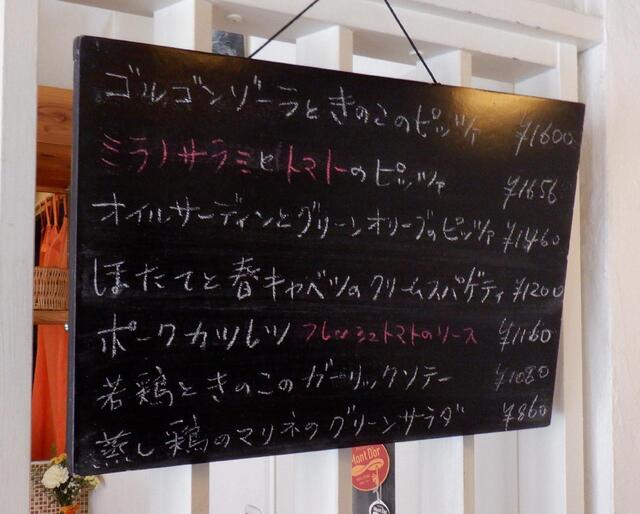 ゴルゴンゾーラときのこのピッツァ ¥1600
ミラノサラミとトマトのピッツァ ¥1656
オイルサーディンとグリーンオリーブのピッツァ ¥1460
ほたてと春キャベツのクリームスパゲティ ¥1200
ポークカツレツ フレッシュトマトのソース ¥1160
若鶏ときのこのガーリックソテー ¥1080
蒸し鶏のマリネのグリーンサラダ ¥860
Mont D'or